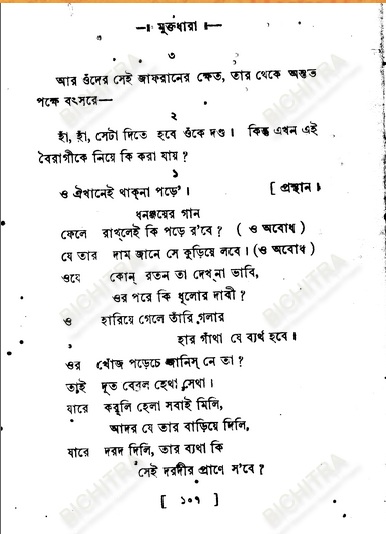 —। মুক্তধারা ।—
৩
আর ওঁদের সেই জাফরানের ক্ষেত, তার থেকে অন্তত
পক্ষে বৎসরে—
২
হাঁ, হাঁ, সেটা দিতে হবে ওঁকে দণ্ড। কিন্তু এখন এই
বৈরাগীকে নিয়ে কি করা যায়?
১
ও ঐখানেই থাক্‌না পড়ে’। [ প্রস্থান।
ধনঞ্জয়ের গান
ফেলে রাখ্‌লেই কি পড়ে র’বে? ( ও অবোধ )
যে তার দাম জানে সে কুড়িয়ে লবে। (ও অবোধ )
ওযে কোন্ রতন তা দেখ্‌না ভাবি,
ওর পরে কি ধূলোর দাবী?
ও হারিয়ে গেলে তাঁরি গলার
হার গাঁথা যে ব্যর্থ হবে॥
ওর খোঁজ পড়েচে জানিস্ নে তা?
তাই দূত বেরল হেথা সেথা।
যারে কর্‌লি হেলা সবাই মিলি,
আদর যে তার বাড়িয়ে দিলি,
যারে দরদ দিলি, তার ব্যথা কি
সেই দরদীর প্রাণে স’বে?
[ ১০৭ ]
BICHITRA
BICHITRA
BICHITRA
BICHITRA
BICHITRA
BICHITRA